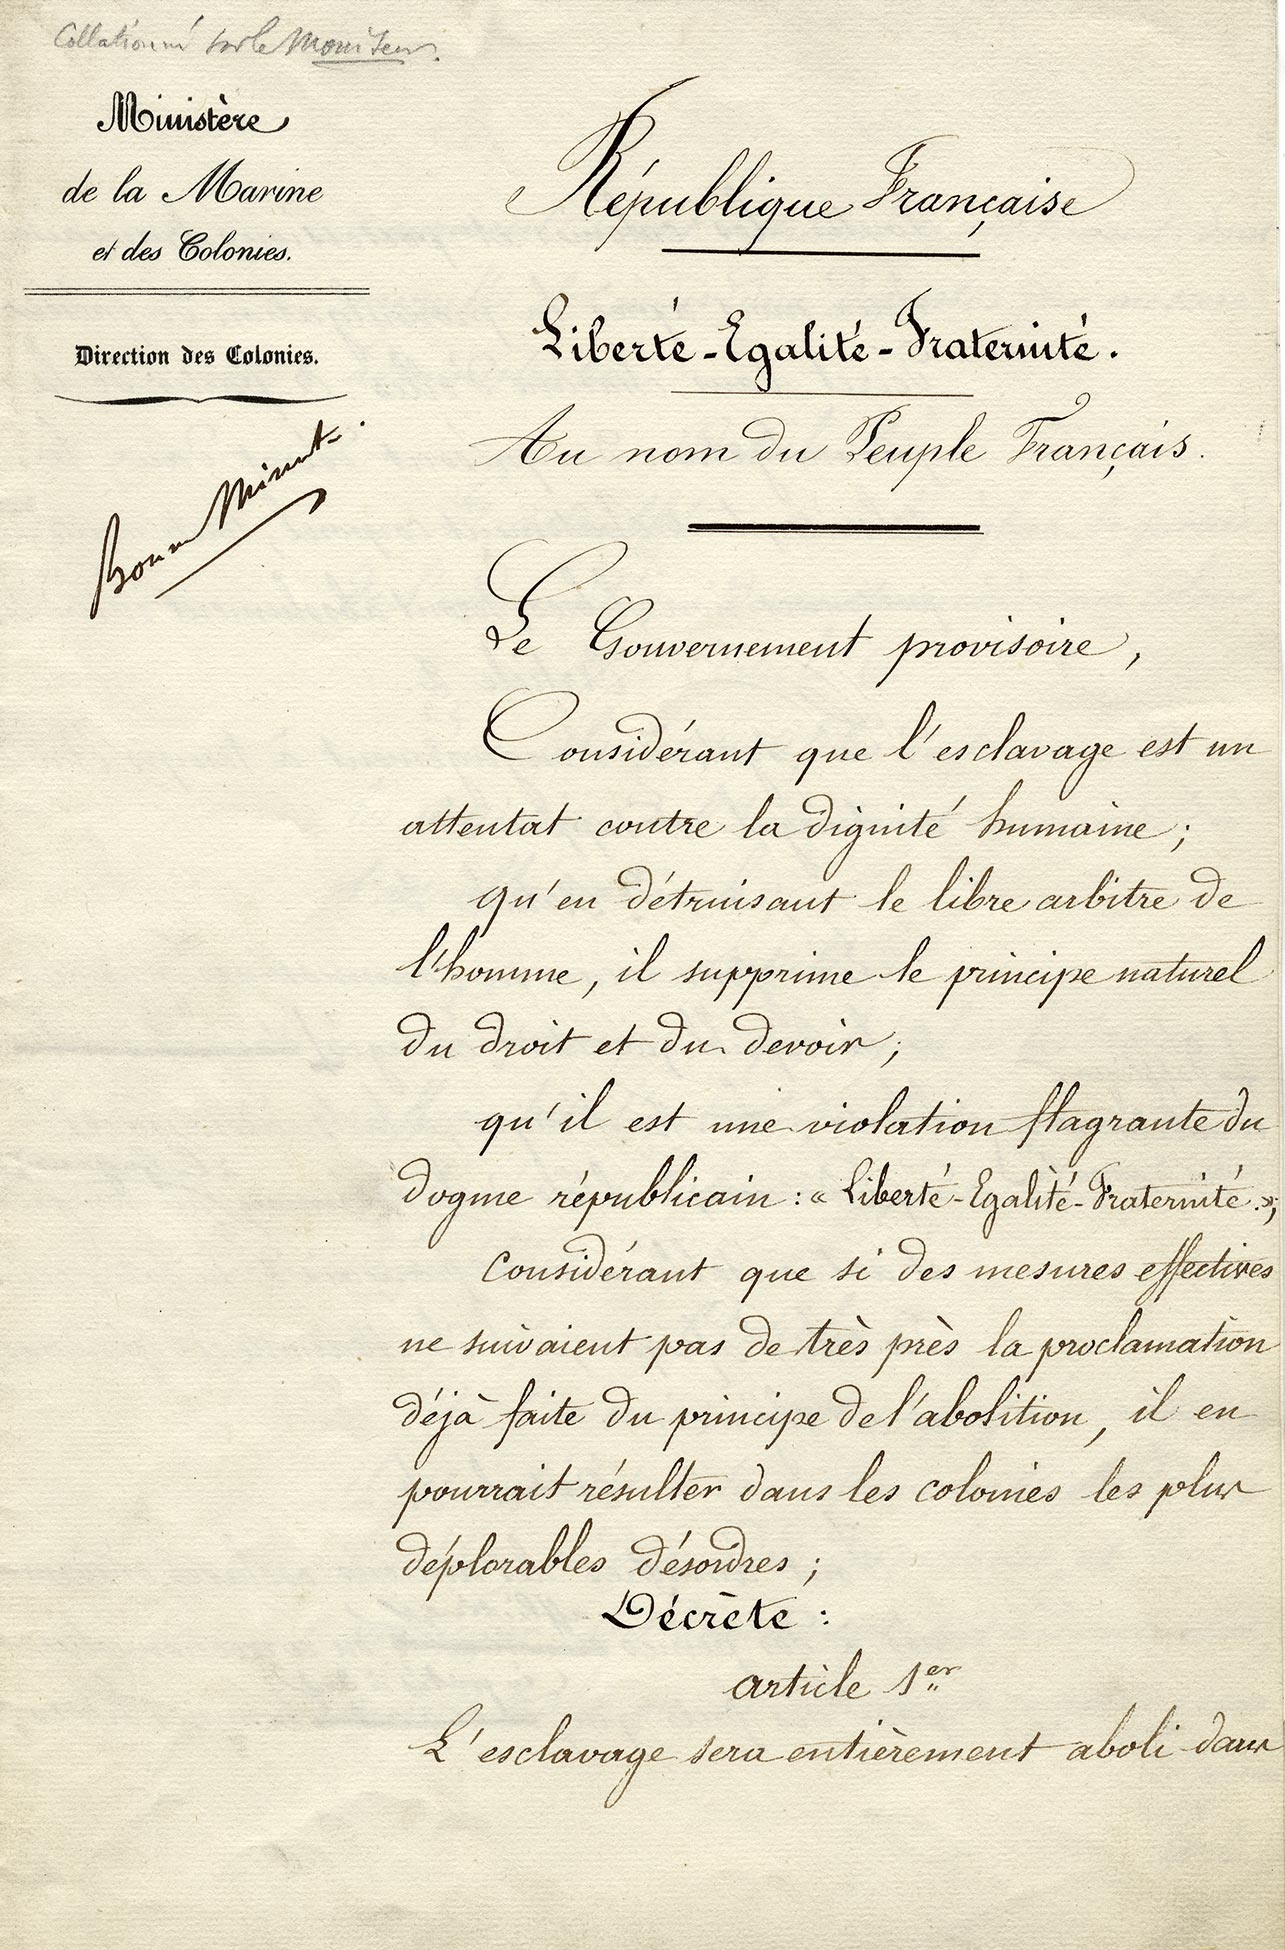 Collationné sur le Moniteur.
Ministère
de la Marine
et des Colonies.
Direction des Colonies.
Bonne Minute.
République Française
Liberté - Egalité - Fraternité.
Au nom du Peuple Français.
Le Gouvernement provisoire,
Considérant que l'esclavage est un
attentat contre la dignité humaine;
qu'en détruisant le libre arbitre de
l'homme, il supprime le principe naturel
du droit et du devoir;
qu'il est une violation flagrante du
dogme républicain : « Liberté - Egalité - Fraternité. »;
Considérant que si des mesures effectives
ne suivaient pas de très près la proclamation
déjà faite du principe de l'abolition, il en
pourrait résulter dans les colonies les plus
déplorables désordres;
Décrète :
article 1er
L'esclavage sera entièrement aboli dans